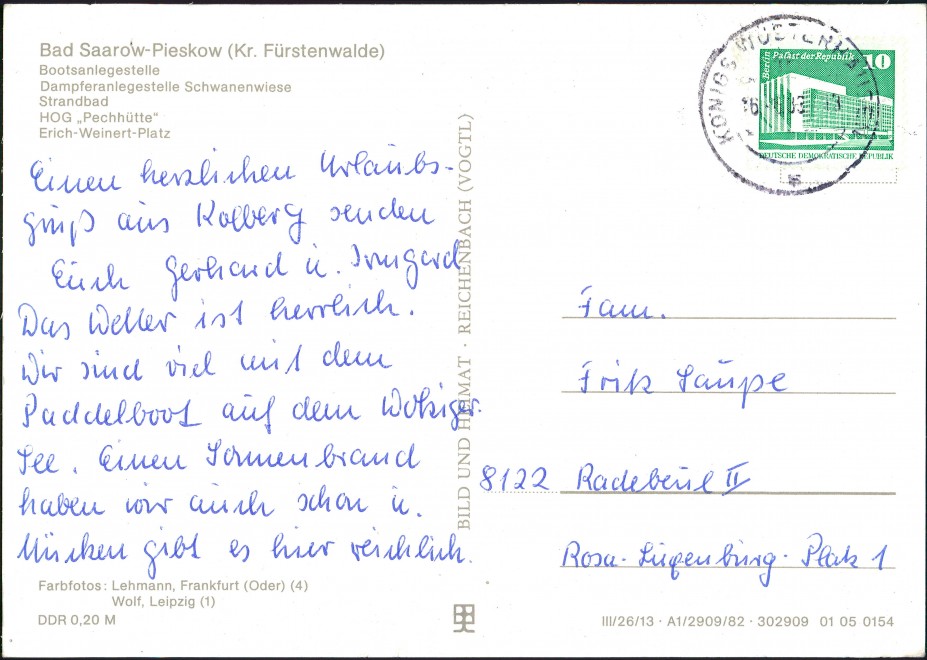 Bad Saarow-Pieskow (Kr. Fürstenwalde)
Bootsanlegestelle
Dampferanlegestelle Schwanenwiese
Strandbad
HOG „Pechhütte“
Erich-Weinert-Platz
Einen herzlichen Urlaubs-
gruß aus Kolberg senden
Euch Gerhard u. Irmgard
Das Wetter ist herrlich.
Wir sind viel mit dem
Paddelboot auf dem Wolziger
See. Einen Sonnenbrand
haben wir auch schon u.
Mücken gibt es hier reichlich.
Farbfotos: Lehmann, Frankfurt (Oder) (4)
Wolf, Leipzig (1)
DDR 0,20 M
BILD UND HEIMAT · REICHENBACH (VOGTL)
KÖNIGS WUSTERHAUSEN
Berlin Palast der Republik 10
DEUTSCHE DEMOKRATISCHE REPUBLIK
Fam.
Fritz Saupe
8122 Radebeul II
Rosa-Luxemburg-Platz 1
III/26/13 · A1/2909/82 · 302909 01 05 0154